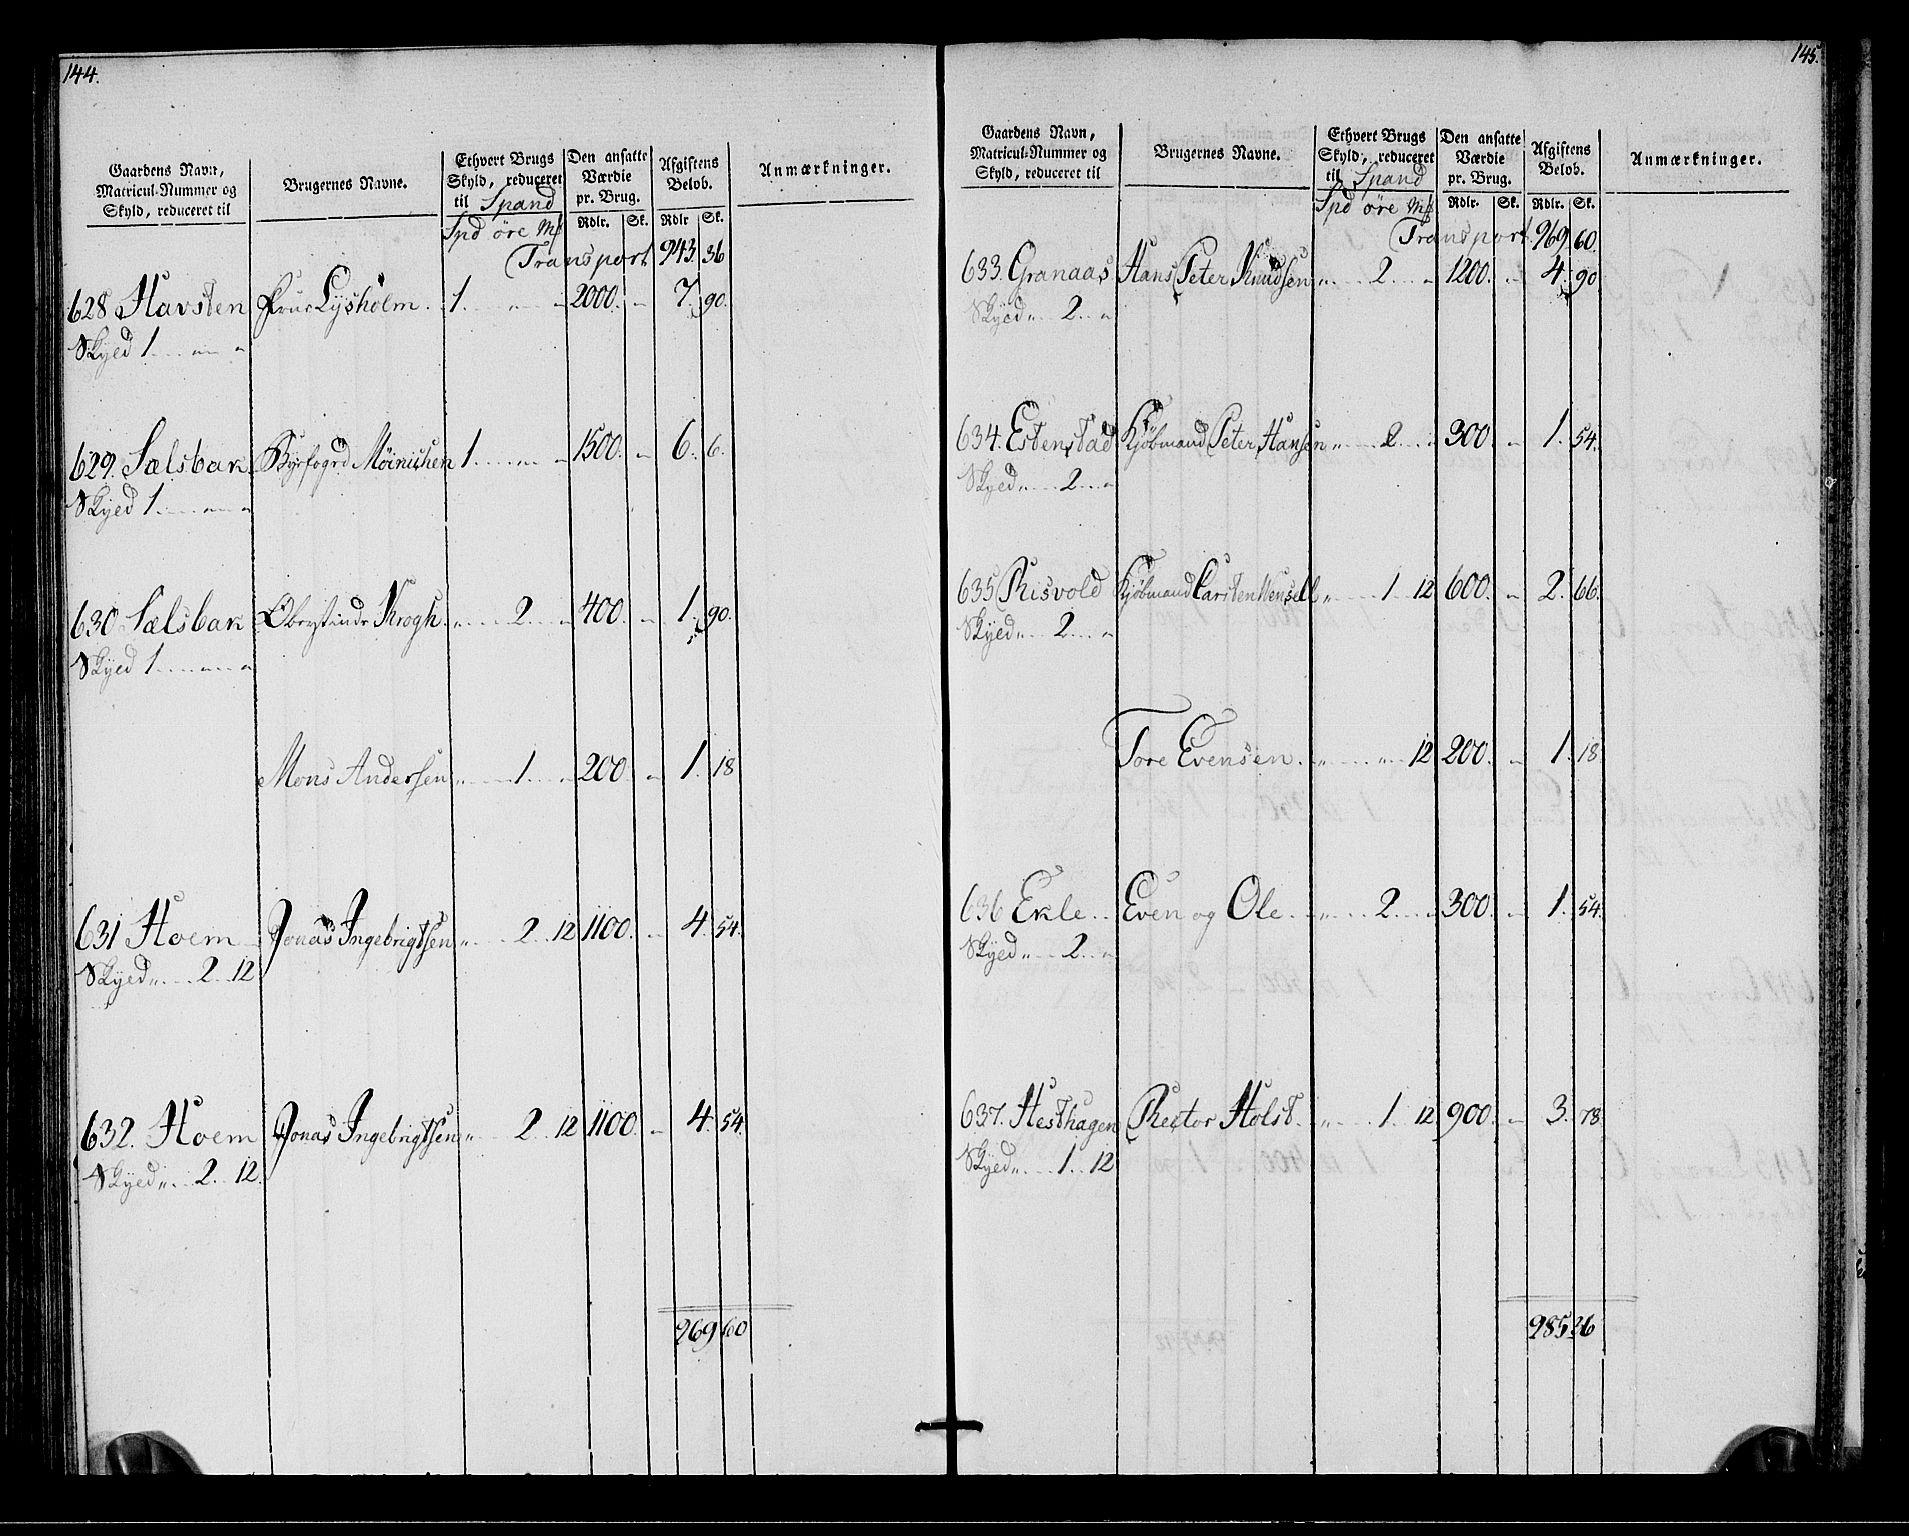 144.
Gaardens Navn, Matricul-Nummer og Skyld, reduceret til
Brugernes Navne.
Ethvert Brugs Skyld, reduceret til Spand
Den ansatte Værdie pr. Brug.
Afgiftens Beløb.
Anmærkninger.
Spd øre Mſ Rdlr. Sk. Rdlr Sk.
Transport 943. 36
628 Havsten Frue Lysholm. 1. " " 2000. " 7. 90.
Skyed 1. " "
629. Sælsbak Byefogd Möinichen 1. " " 1500. " 6. 6.
Skyed 1. " "
630 Sælsbak Oberstinde Krogh. " 2. " 400. " 1. 90.
Skyed 1. " "
Mons Andersen " 1. " 200. " 1. 18
631 Hoem Jonas Ingebrigtsen " 2. 12 1100. " 4. 54.
Skyed " 2. 12
632. Hoem Jonas Ingebrigtsen " 2. 12 1100. " 4. 54.
Skyed " 2. 12.
969 60
145.
Gaardens Navn, Matricul-Nummer og Skyld, reduceret til
Brugernes Navne.
Ethvert Brugs Skyld, reduceret til Spand
Den ansatte Værdie pr. Brug.
Afgiftens Beløb.
Anmærkninger.
Spd øre Mſ Rdlr. Sk. Rdlr. Sk.
Transport 969 60.
633. Granaas Hans Peter Knudsen " 2. " 1200. " 4. 90
Skyed " 2. "
634. Estenstad Kjøbmand Peter Hansen " 2. " 300. " 1. 54.
Skyed " 2. "
635 Risvold Kjøbmand Carsten Wensell " 1 12 600. " 2. 66.
Skyed " 2. "
Tore Evensen. " " 12 200. " 1. 18
636 Ekle. Even og Ole. " 2. " 300. " 1. 54.
Skyed " 2. "
637. Hesthagen Rector Holst. " 1. 12 900. " 3. 78
Skyed " 1. 12
985 36